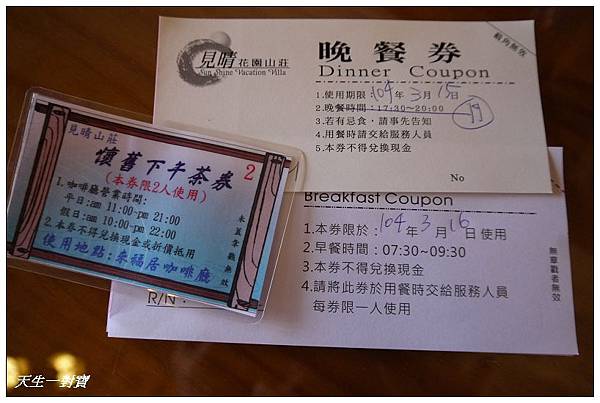 見晴花園山莊
Sun Shine Vacation Villa
晚餐券
Dinner Coupon
截角無效
1.使用期限:104年3月15日
2.晚餐時間:17:30~20:00
3.若有忌食、請事先告知
4.用餐時請交給服務人員
5.本券不得兌換現金
No
Breakfast Coupon
1.本券限於:104年3月16日使用
2.早餐時間:07:30~09:30
3.本券不得兌換現金
4.請將此券於用餐時交給服務人員
每券限一人使用
無章戳者無效
R/N:
見晴山莊
懷舊下午茶券
2
(本券限2人使用)
1.咖啡廳營業時間:
平日:am 11:00~pm 21:00
假日:am 10:00~pm 22:00
2.本券不得兌換現金或折價抵用
使用地點:幸福居咖啡廳
未蓋章戳無效
天生一對寶